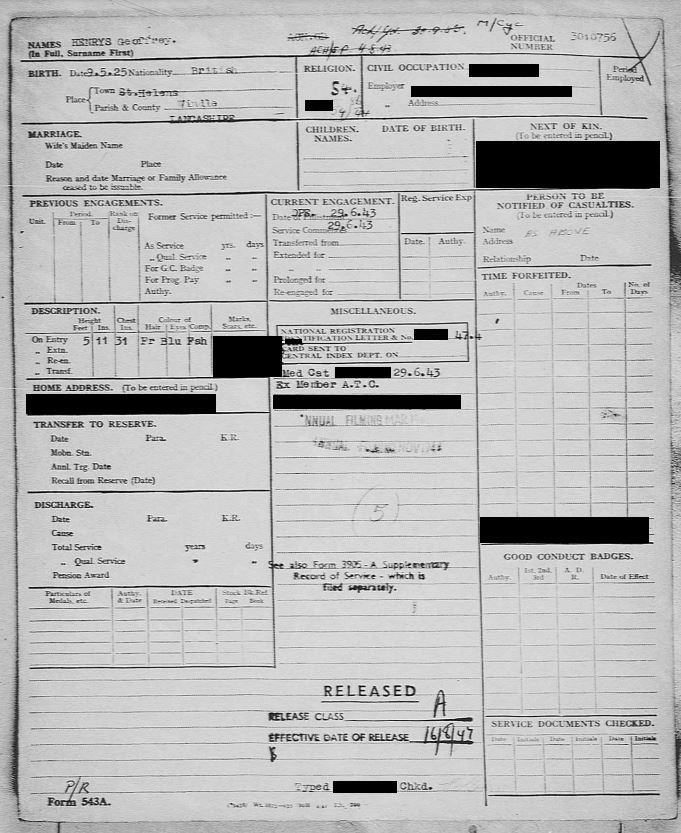 NAMES HENRYS Geoffrey.
(In Full, Surname First)
M/Cyc
OFFICIAL NUMBER 3010756
ACH/GP 4.8.43
BIRTH. Date 9.5.25 Nationality British
Place Town St.Helens
Parish & County
LANCASHIRE
RELIGION.
CIVIL OCCUPATION
Employer
" Address
Period Employed
MARRIAGE.
Wife's Maiden Name
Date Place
Reason and date Marriage or Family Allowance
ceased to be issuable.
CHILDREN. NAMES. DATE OF BIRTH.
NEXT OF KIN.
(To be entered in pencil.)
PREVIOUS ENGAGEMENTS.
Unit. Period. From To Rank on Dis-charge
Former Service permitted :—
As Service yrs. days
" Qual. Service " "
For G.C. Badge " "
For Prog. Pay " "
Authy.
CURRENT ENGAGEMENT.
Date of DPE. 29.6.43
Service 29.6.43
Transferred from
Extended for
" "
Prolonged for
Re-engaged for
Reg. Service Exp
Date. Authy.
PERSON TO BE
NOTIFIED OF CASUALTIES.
(To be entered in pencil.)
Name AS ABOVE
Address
Relationship Date
TIME FORFEITED.
Authy. Cause Dates From To No. of Days
DESCRIPTION.
Height Feet Ins. Chest Ins. Colour of Hair Eyes Comp. Marks, Scars, etc.
On Entry 5 11 31 Fr Blu Fsh
" Extn.
" Re-en.
" Transf.
MISCELLANEOUS.
NATIONAL REGISTRATION
IDENTIFICATION LETTER & No.
CARD SENT TO
CENTRAL INDEX DEPT. ON
Med Cat 29.6.43
Ex Member A.T.C.
HOME ADDRESS. (To be entered in pencil.)
ANNUAL FILMING
TRANSFER TO RESERVE.
Date Para. K.R.
Mobn. Stn.
Annl. Trg. Date
Recall from Reserve (Date)
DISCHARGE.
Date Para. K.R.
Cause
Total Service years days
" Qual. Service " "
Pension Award
(5)
See also Form 3905-A Supplementary
Record of Service - which is
filed separately.
GOOD CONDUCT BADGES.
Authy. 1st. 2nd. 3rd A. D. R. Date of Effect
Particulars of Medals, etc. Authy. & Date DATE Received Despatched Stock Bk. Ref. Page Book
RELEASED
RELEASE CLASS A
EFFECTIVE DATE OF RELEASE 16/8/47
SERVICE DOCUMENTS CHECKED.
Date Initials Date Initials Date Initials
P/R
Form 543A.
Typed Chkd.